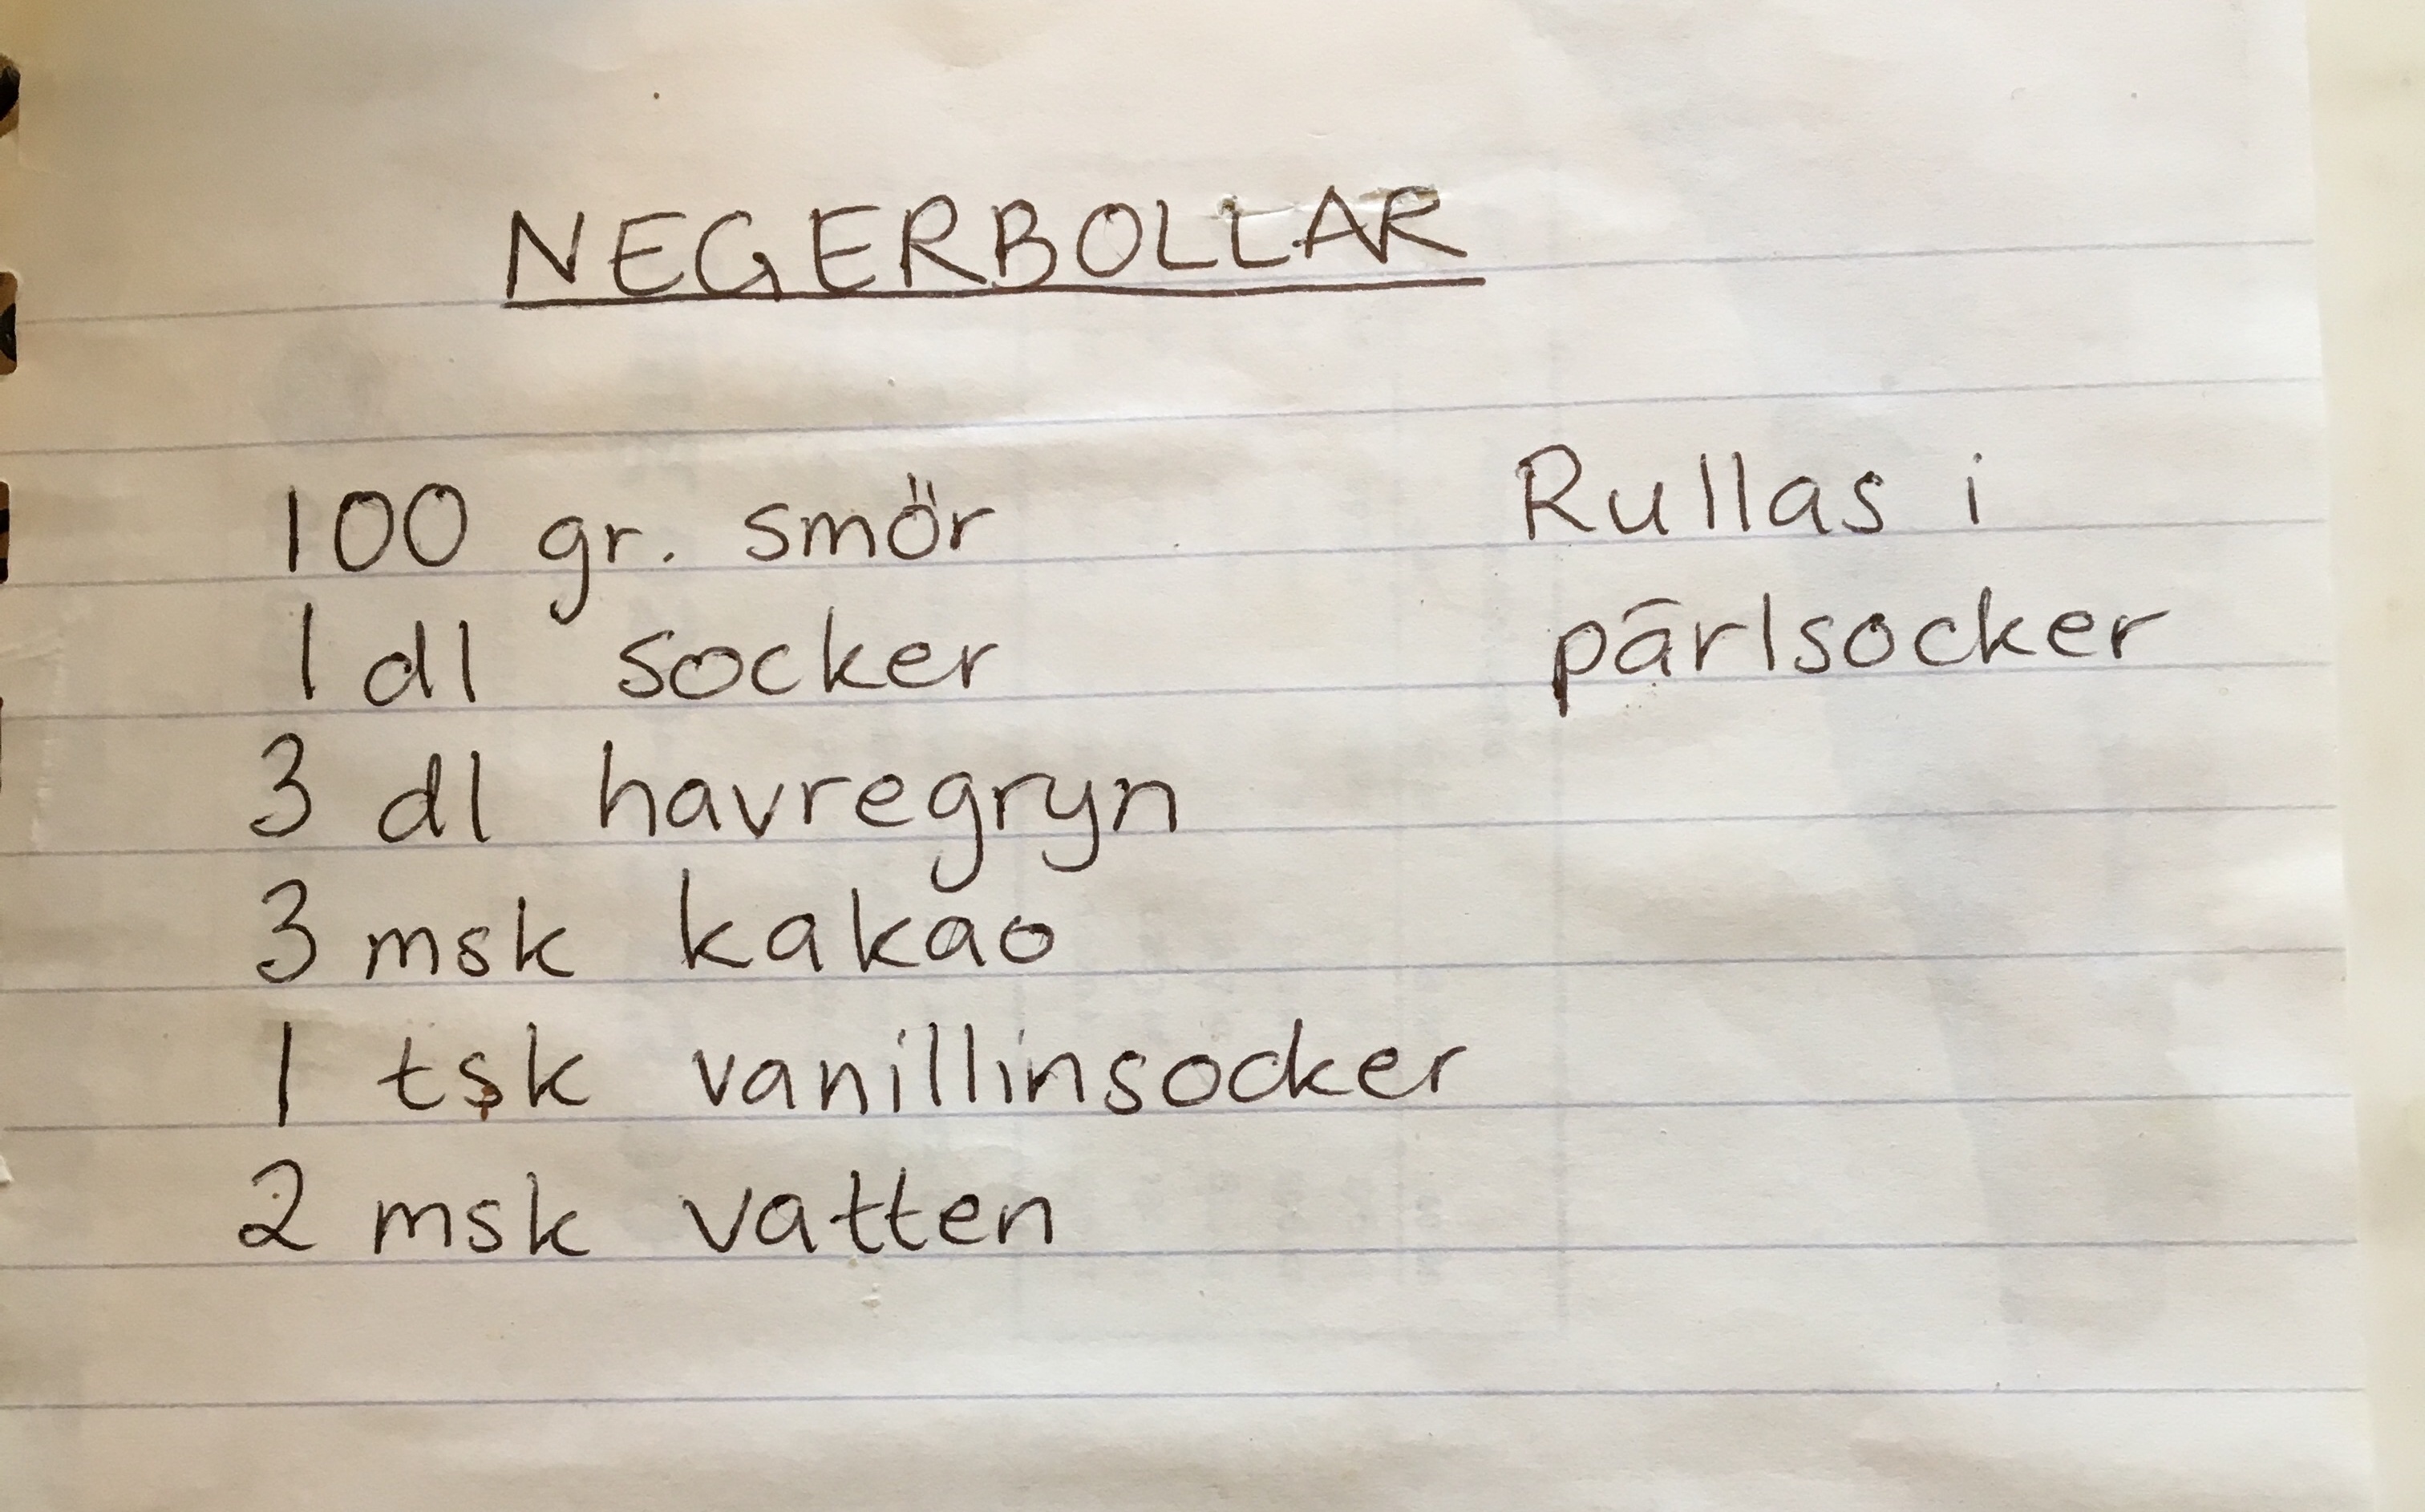 NEGERBOLLAR
100 gr. smör
1 dl socker
3 dl havregryn
3 msk kakao
1 tsk vanillinsocker
2 msk vatten
Rullas i
pärlsocker